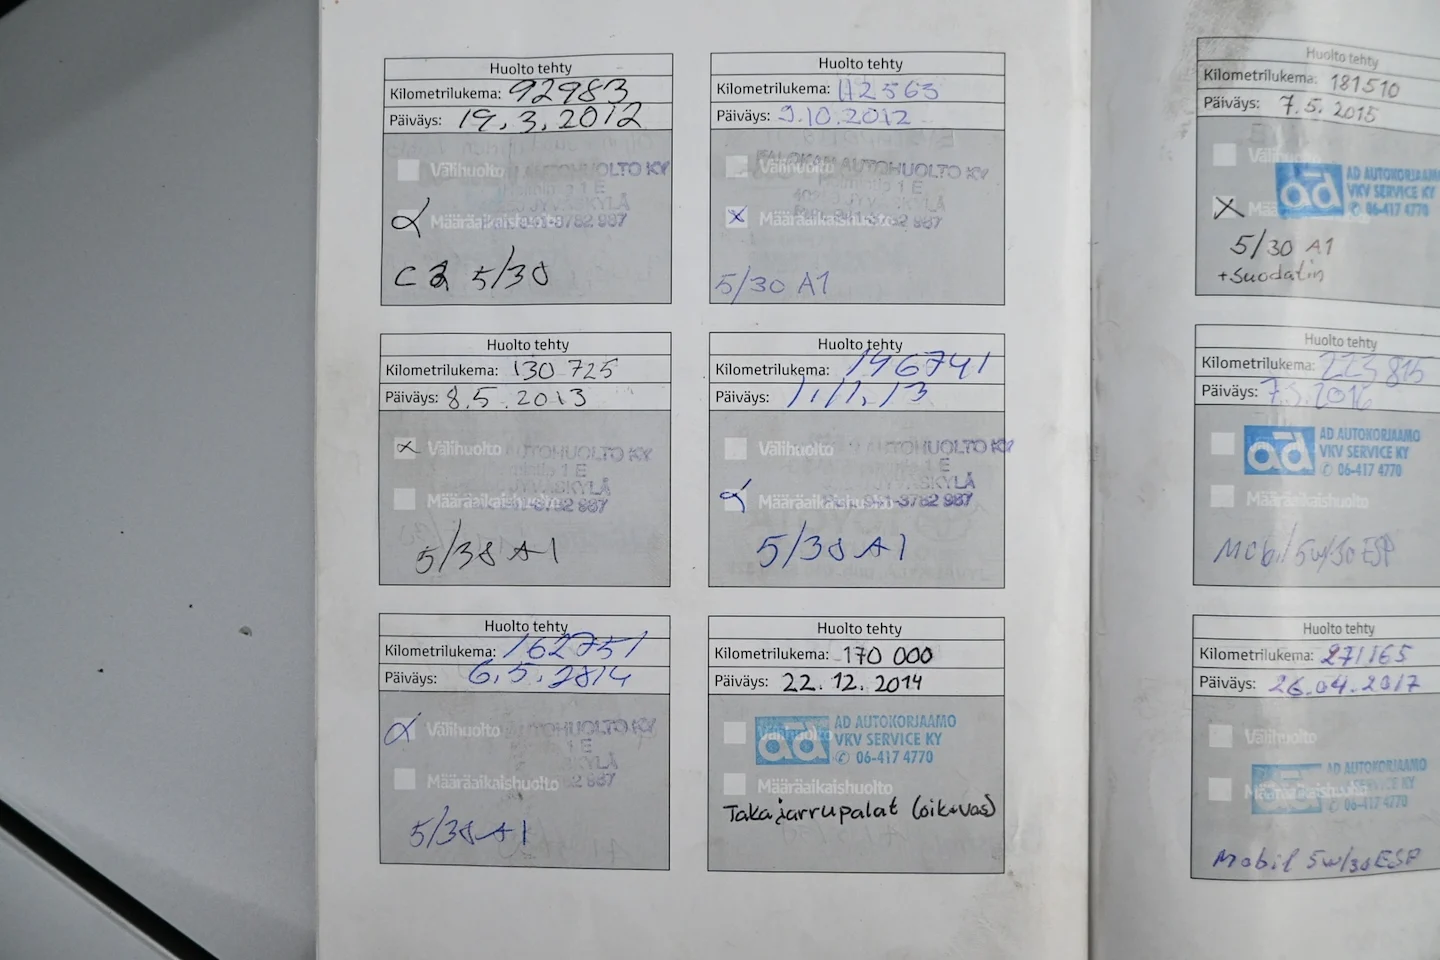 Huolto tehty
Kilometrilukema: 92983
Päiväys: 19.3.2012
Välihuolto AUTOHUOLTO KY
1 E
JYVÄSKYLÄ
Määräaikaishuolto 3782 987
5/30
Huolto tehty
Kilometrilukema: 112563
Päiväys: 9.10.2012
PALOKAN AUTOHUOLTO KY
Välihuolto
1 E
JYVÄSKYLÄ
X Määräaikaishuolto 987
5/30 A1
Huolto tehty
Kilometrilukema: 130 725
Päiväys: 8.5.2013
Välihuolto AUTOHUOLTO KY
1 E
JYVÄSKYLÄ
Määräaikaishuolto 3782 987
5/30 A1
Huolto tehty
Kilometrilukema: 146741
Päiväys: 1.11.13
Välihuolto AUTOHUOLTO KY
1 E
JYVÄSKYLÄ
Määräaikaishuolto 3782 987
5/30 A1
Huolto tehty
Kilometrilukema: 162751
Päiväys: 6.5.2014
Välihuolto AUTOHUOLTO KY
1 E
Määräaikaishuolto 987
5/30 A1
Huolto tehty
Kilometrilukema: 170 000
Päiväys: 22.12.2014
Välihuolto
ad AD AUTOKORJAAMO
VKV SERVICE KY
06-417 4770
Määräaikaishuolto
Takajarrupalat (oik+vas)
Huolto tehty
Kilometrilukema: 181510
Päiväys: 7.5.2015
ad AD AUTOKORJAAMO
VKV SERVICE KY
06-417 4770
X
5/30 A1
+suodatin
Huolto tehty
Kilometrilukema: 223 815
Päiväys: 2016
ad AD AUTOKORJAAMO
VKV SERVICE KY
06-417 4770
Määräaikaishuolto
Mobil 5w/30 ESP
Huolto tehty
Kilometrilukema: 271165
Päiväys: 26.04.2017
Välihuolto
AD AUTOKORJAAMO
VKV SERVICE KY
06-417 4770
Määräaikaishuolto
Mobil 5w/30 ESP